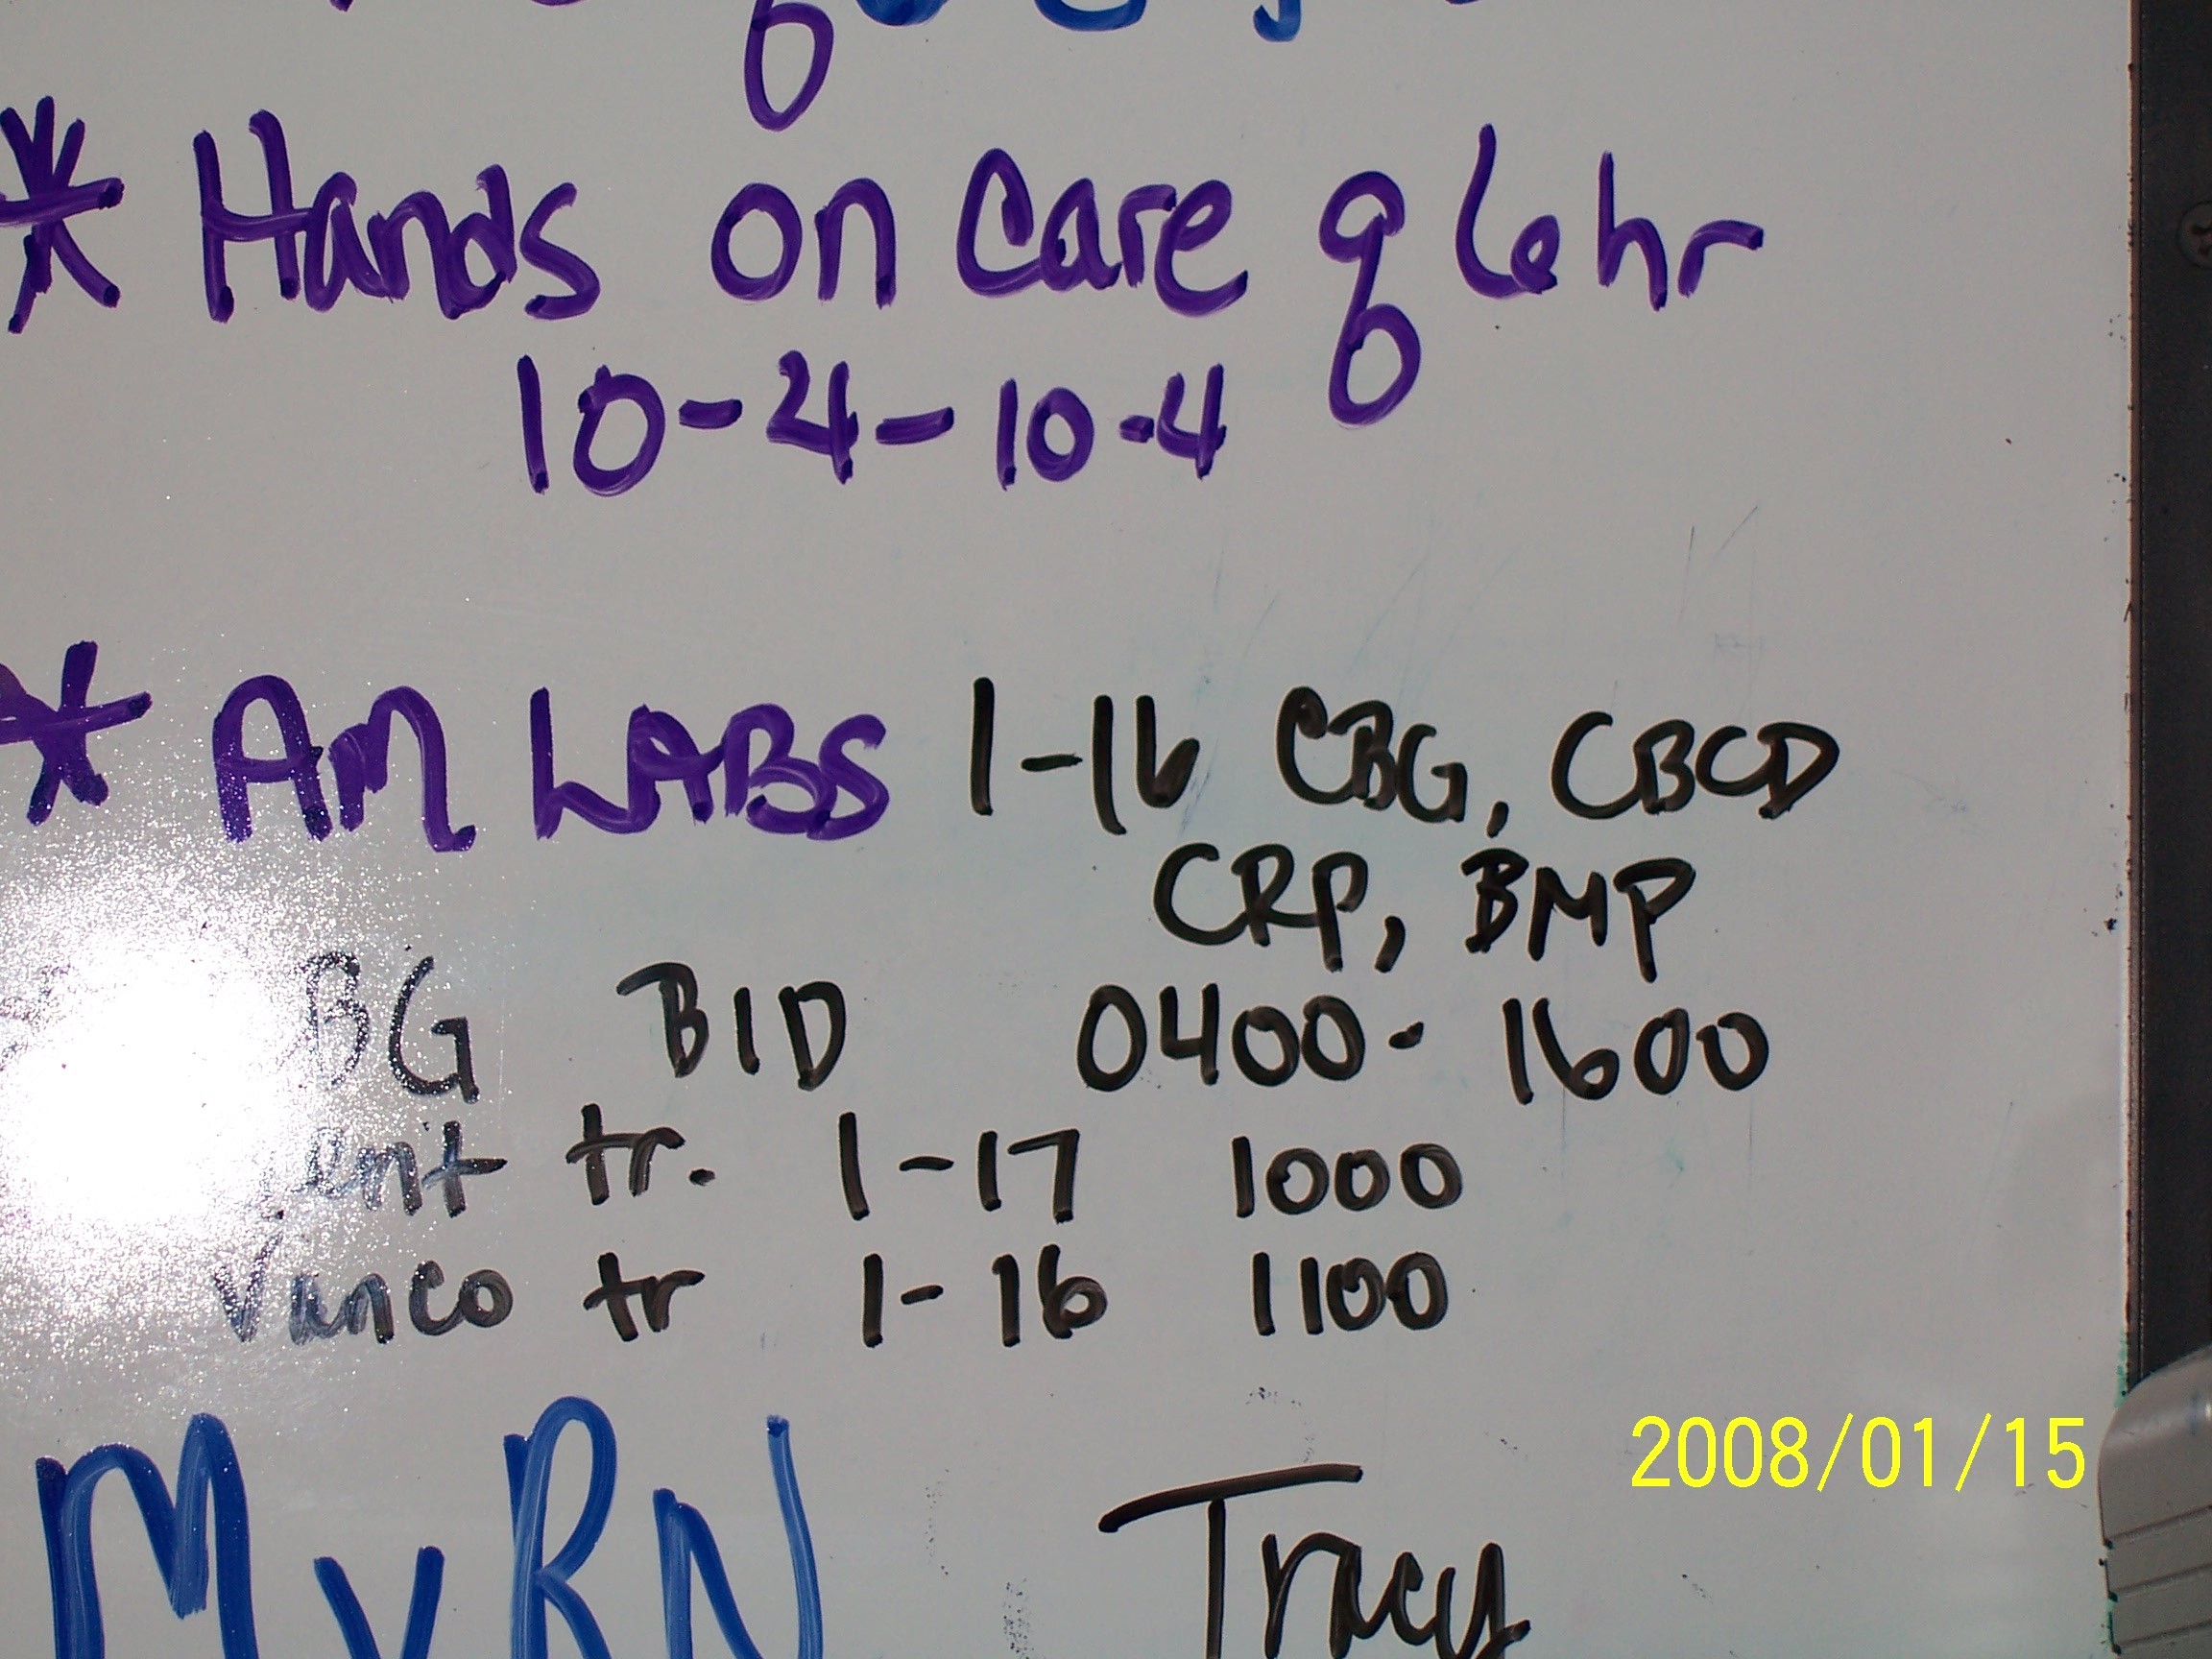 * Hands on Care q 6hr
10-4-10-4
* AM LABS 1-16 CBG, CBCD
CRP, BMP
BG BID 0400 - 1600
tr. 1-17 1000
Vanco tr 1-16 1100
My RN Tracy
2008/01/15